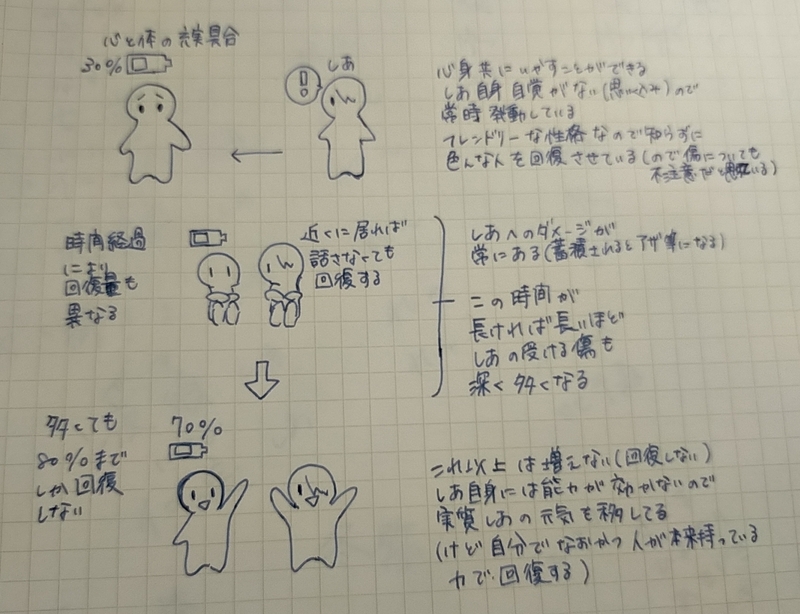 心と体の充実具合
30%
しあ
!
心身共にいやすことができる
しあ自身自覚がない(思いこみ)ので
常時発動している
フレンドリーな性格なので知らずに
色んな人を回復させている(ので傷についても
不注意だと思っている)
時間経過
により
回復量も
異なる
近くに居れば
話さなくても
回復する
しあへのダメージが
常にある(蓄積されるとアザ等になる)
この時間が
長ければ長いほど
しあの受ける傷も
深く多くなる
多くても
80%まで
しか回復
しない
70%
これ以上は増えない(回復しない)
しあ自身には能力が効かないので
実質しあの元気を移してる
(けど自分でなおかつ人が本来持っている
力で回復する)